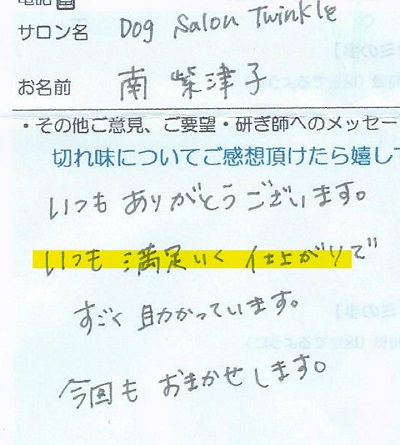 サロン名 Dog Salon Twinkle
お名前 南 紫津子
・その他ご意見、ご要望・研ぎ師へのメッセー
切れ味についてご感想頂けたら嬉して
いつも ありがとうございます。
いつも 満足いく 仕上がりで
すごく 助かっています。
今回も おまかせします。